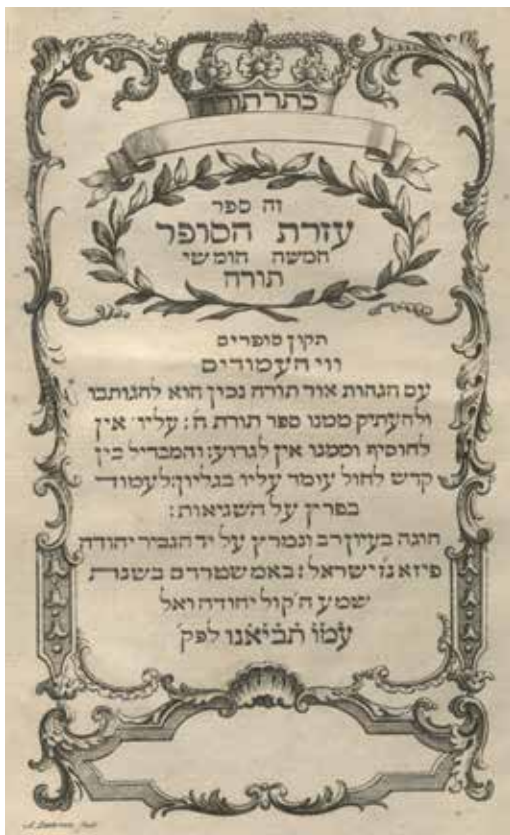 כתר תורה
זה ספר
עזרת הסופר
חמשה חומשי
תורה
תקון סופרים
ווי העמודים
עם הגהות אור תורה נכון הוא להגותבו
ולהעתיק ממנו ספר תורת ה׃ עליו אין
להוסיף וממנו אין לגרוע׃ והמבדיל בין
קדש לחול עומד עליו בגליון׃ לעמוד
בפרץ על השגיאות׃
הוגה בעיון רב ונמרץ על יד הגביר יהודה
פיזא נ׳ו ישראל׃ באמשטרדם בשנת
שמע ה׳ קול יהודה ואל
עמו תביאנו לפק׳